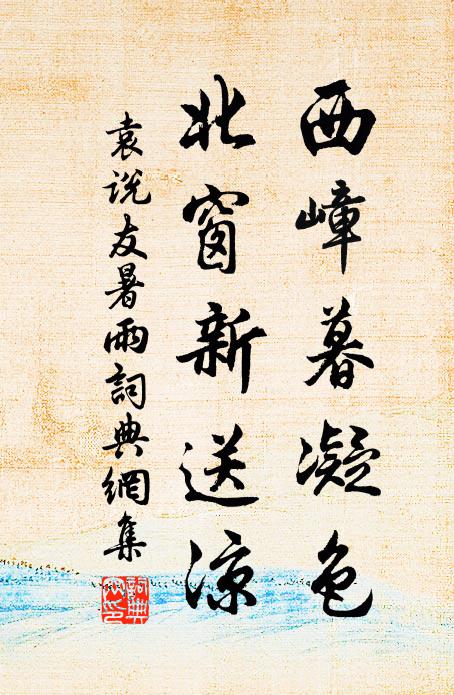 西嶂暮凝色
北窗新送凉
袁説友暑雨詞典網集